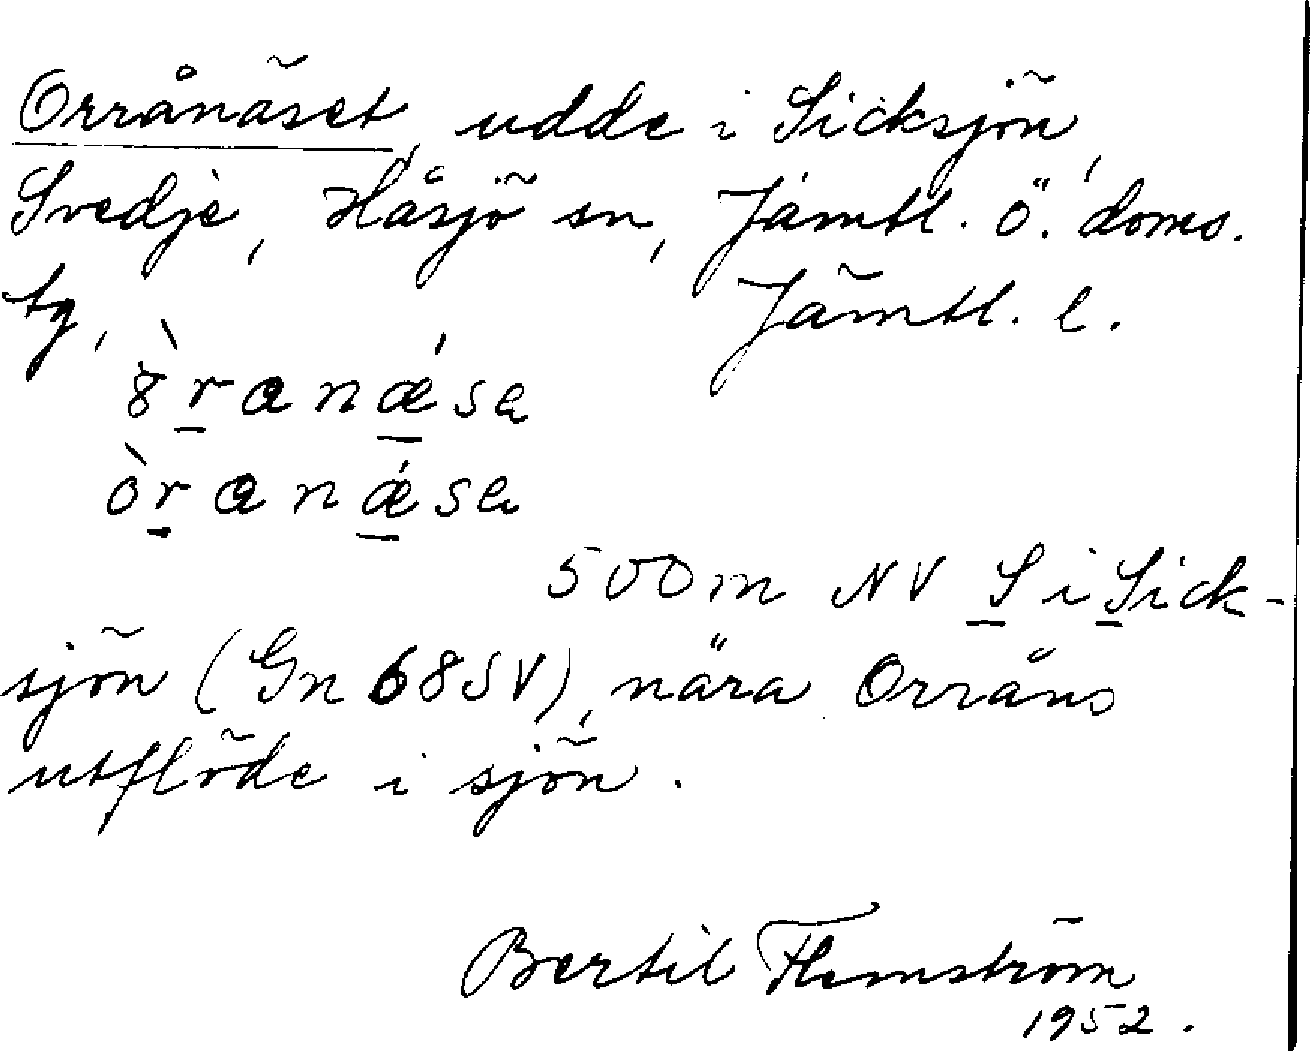 Orrånäset, udde i Sicksjön,
Svedje, Håsjö sn, Jämtl. ö. doms.
tg, Jämtl. l.
òranǽsa
òranǽsa
500m NV S i Sick-
sjön (Gn 68SV), nära Orråns
utflöde i sjön.
Bertil Flemström
1952.